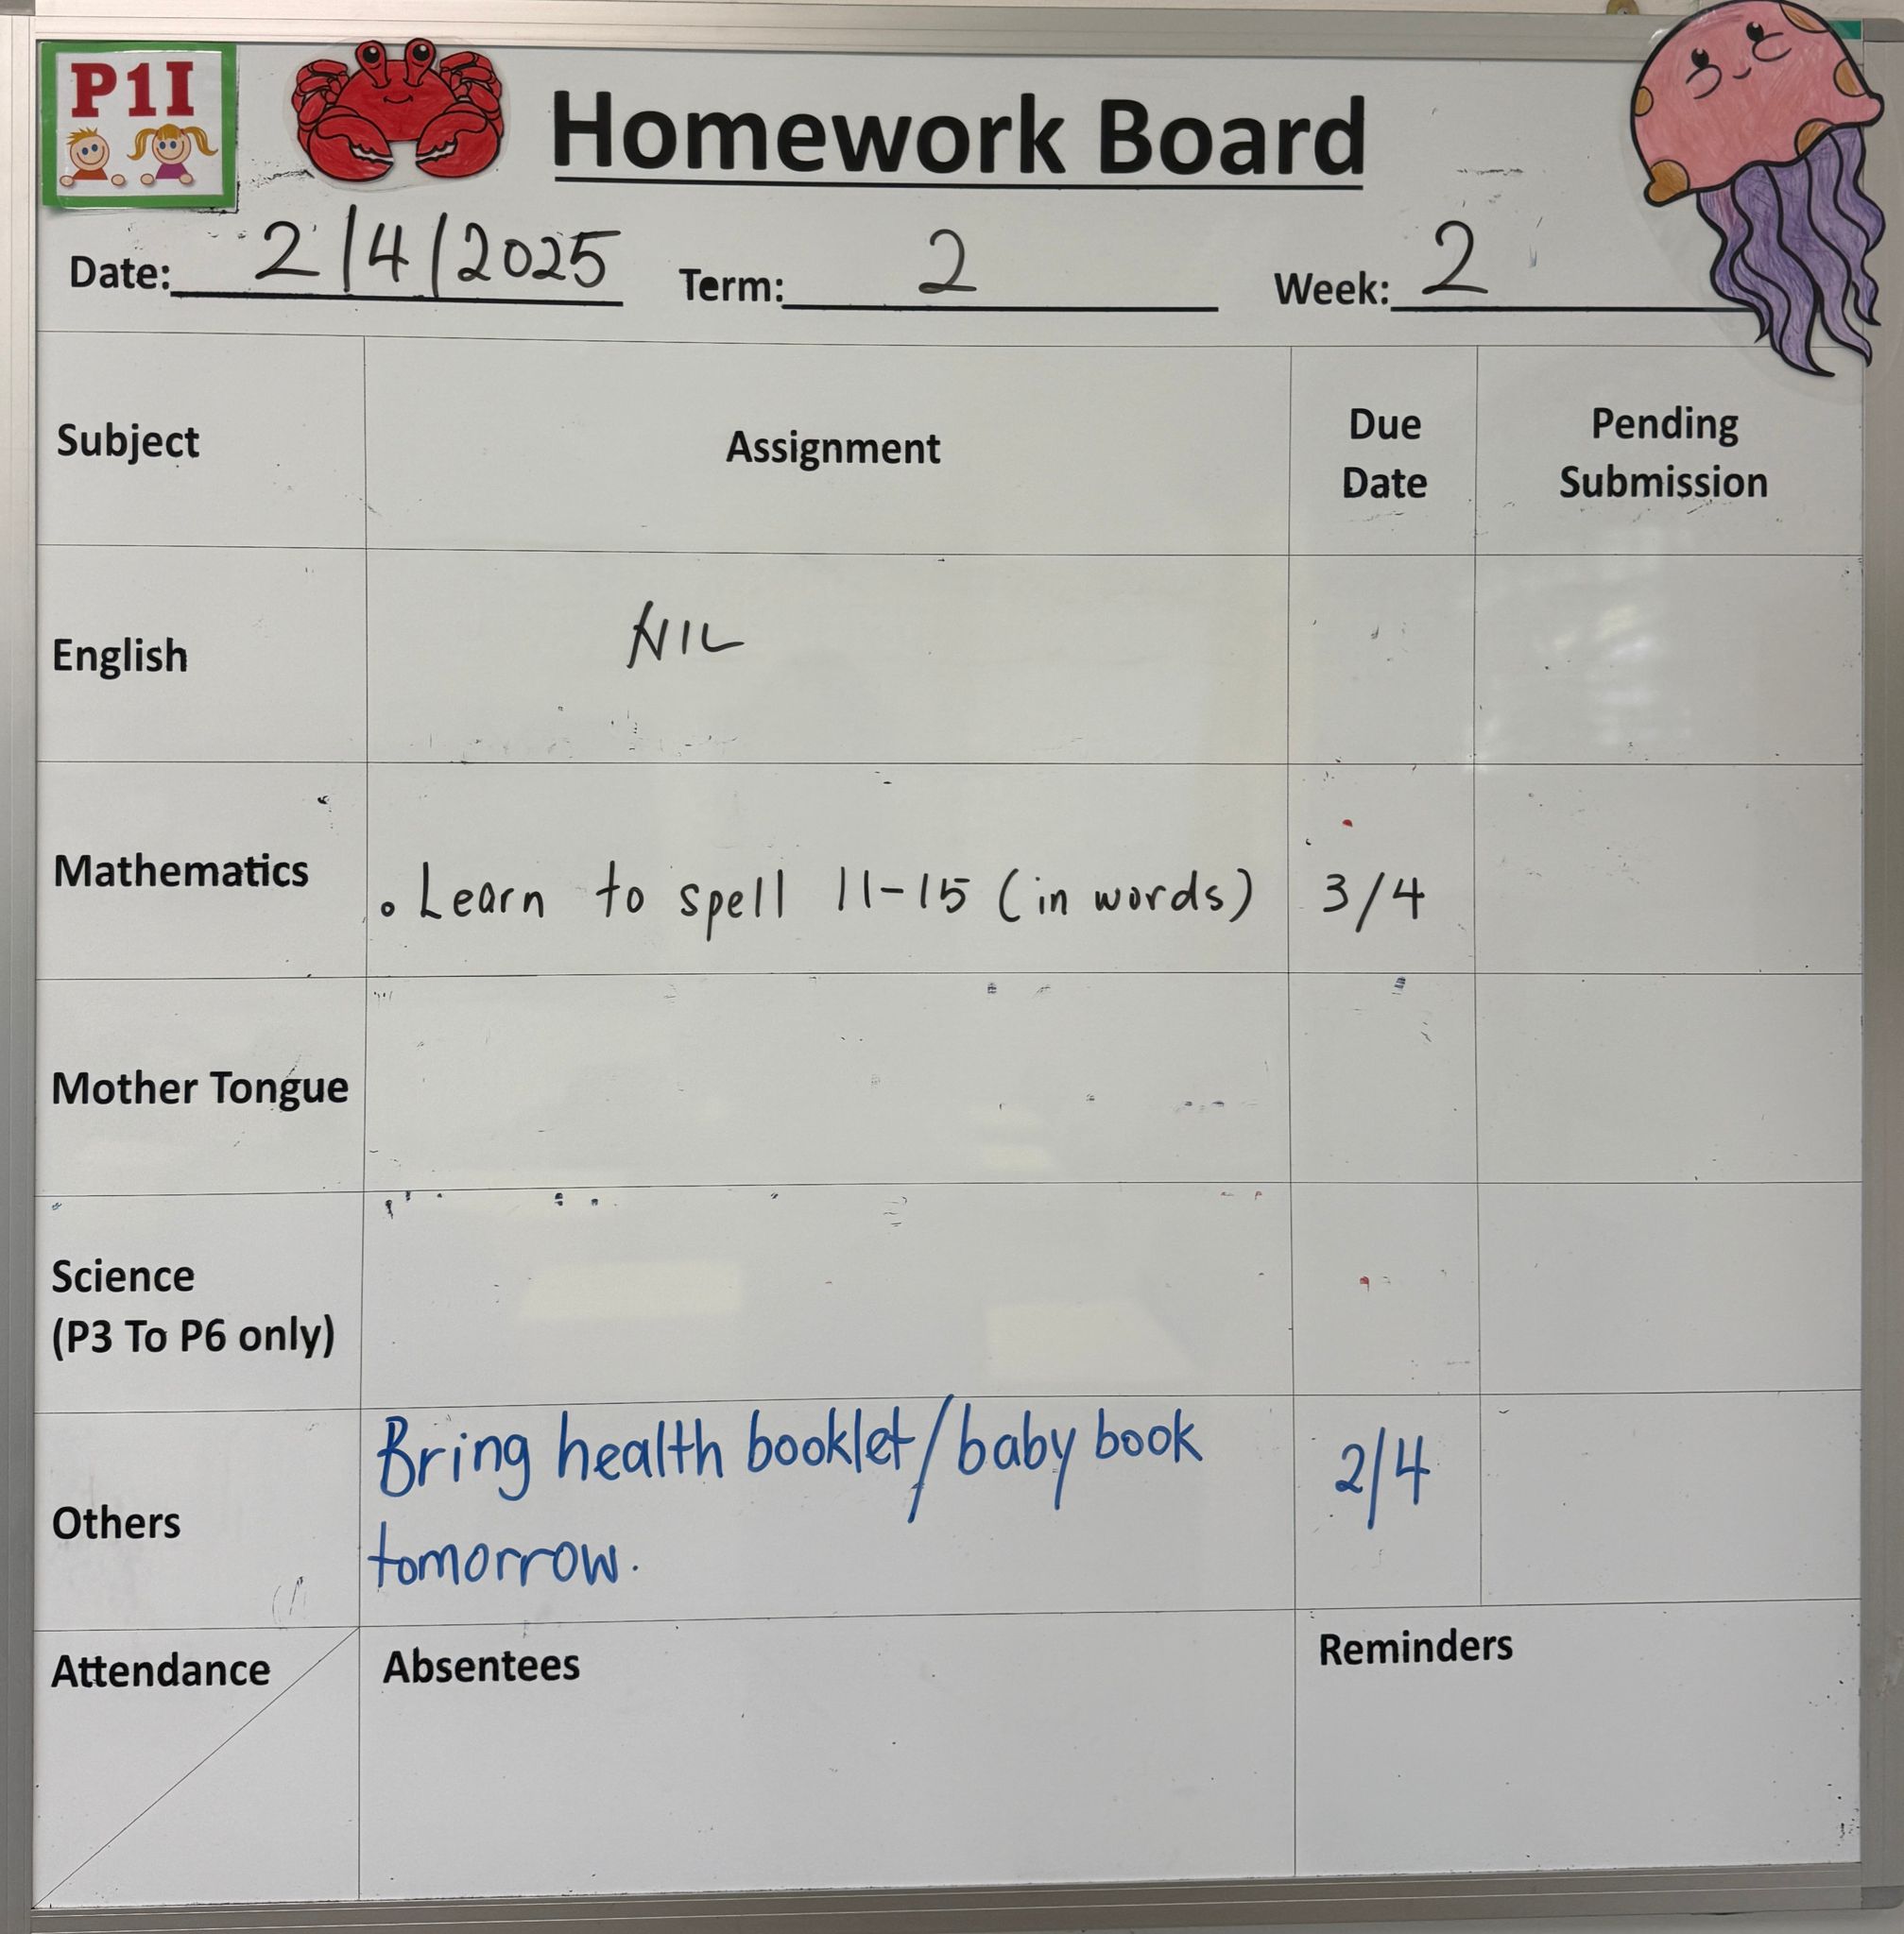 P1I
Homework Board
Date: 2/4/2025 Term: 2 Week: 2
Subject Assignment Due Date Pending Submission
English NIL
Mathematics • Learn to spell 11-15 (in words) 3/4
Mother Tongue
Science
(P3 To P6 only)
Others Bring health booklet/baby book 2/4
tomorrow.
Attendance Absentees Reminders